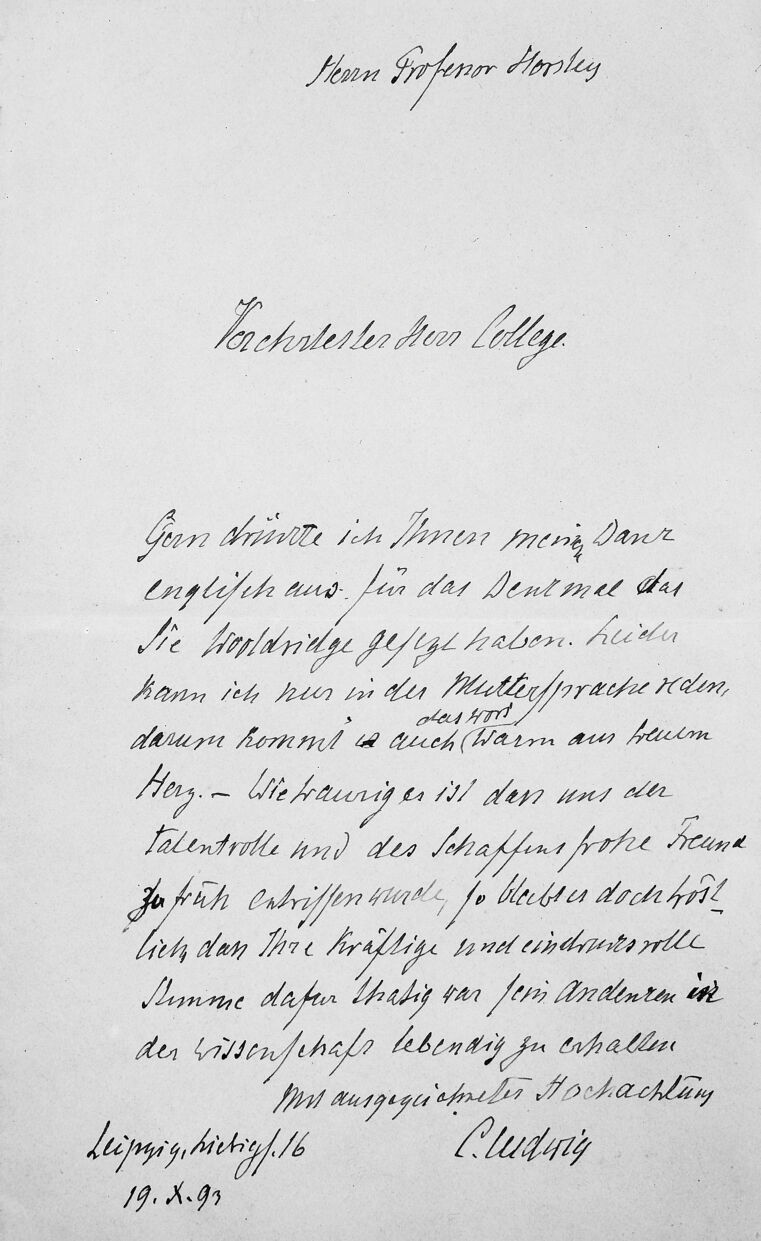 Herrn Professor Horsley
Verehrtester Herr College.
Gern drückte ich Ihnen meinen Dank
englisch aus für das Denkmal das
Sie Wooldridge gesezt haben. Leider
kann ich nur in der Muttersprache reden,
darum kommt auch das Wort warm aus treuem
Herz. – Wie traurig es ist dass uns der
talentvolle und des Schaffens frohe Freund
zu früh entrissen wurde, so bleibt es doch tröst-
lich, dass Ihre kräftige und eindrucksvolle
Stimme dafür thätig war sein Andenken in
der Wissenschaft lebendig zu erhalten
Mit ausgezeichneter Hochachtung
C. Ludwig
Leipzig, Liebigs. 16
19. X. 93